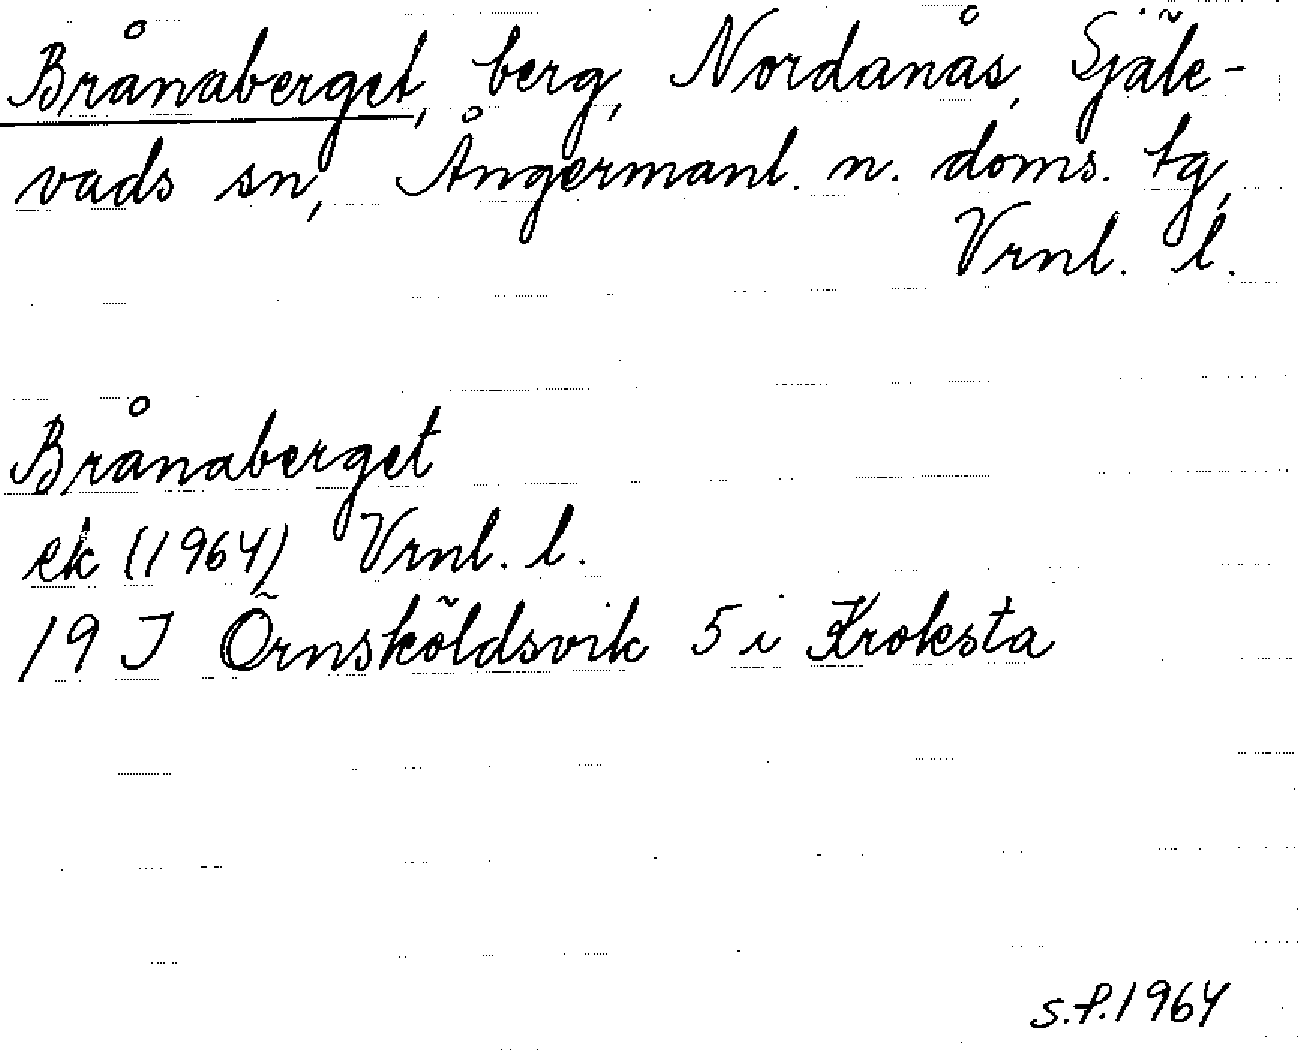 Brånaberget, berg, Nordanås, Själe-
vads sn, Ångermanl. n. doms. tg,
Vrnl. l.
Brånaberget
ek (1964) Vrnl. l.
19 J Örnsköldsvik 5 i Kroksta
s.f. 1964